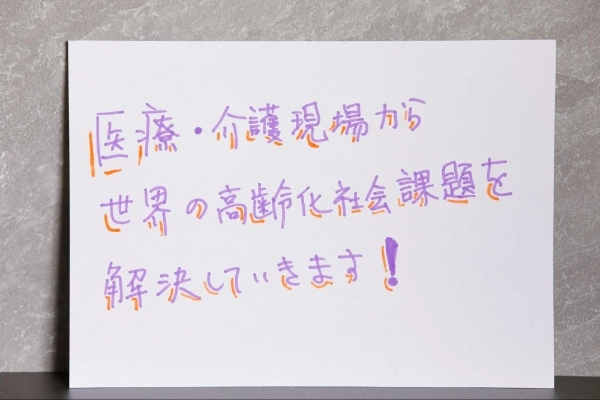 医療・介護現場から
世界の高齢化社会課題を
解決していきます!